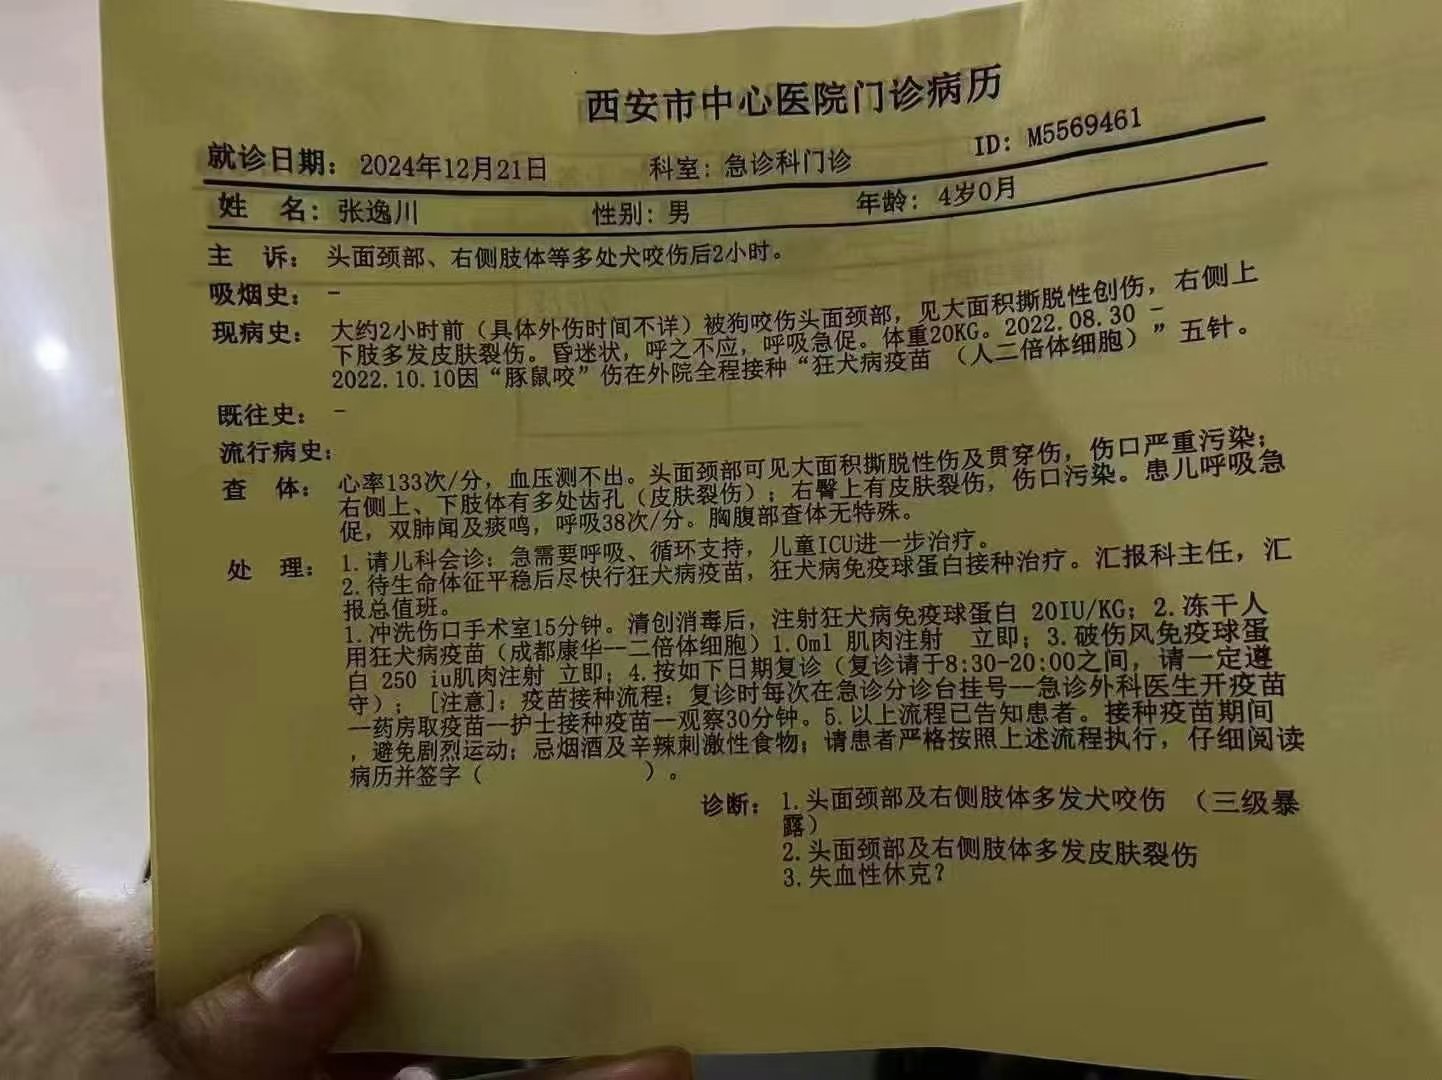 西安市中心医院门诊病历
就诊日期：2024年12月21日 科室：急诊科门诊 ID：M5569461
姓 名：张逸川 性别：男 年龄：4岁0月
主 诉：头面颈部、右侧肢体等多处犬咬伤后2小时。
吸烟史：-
现病史：大约2小时前（具体外伤时间不详）被狗咬伤头面颈部，见大面积撕脱性创伤，右侧上
下肢多发皮肤裂伤。昏迷状，呼之不应，呼吸急促。体重20KG。2022.08.30 -
2022.10.10因“豚鼠咬”伤在外院全程接种“狂犬病疫苗 （人二倍体细胞）”五针。
既往史：-
流行病史：
查 体：心率133次/分，血压测不出。头面颈部可见大面积撕脱性伤及贯穿伤，伤口严重污染；
右侧上、下肢体有多处齿孔（皮肤裂伤）；右臀上有皮肤裂伤，伤口污染。患儿呼吸急
促，双肺闻及痰鸣，呼吸38次/分。胸腹部查体无特殊。
处 理：1.请儿科会诊；急需要呼吸、循环支持，儿童ICU进一步治疗。
2.待生命体征平稳后尽快行狂犬病疫苗，狂犬病免疫球蛋白接种治疗。汇报科主任，汇
报总值班。
1.冲洗伤口手术室15分钟。清创消毒后，注射狂犬病免疫球蛋白 20IU/KG；2.冻干人
用狂犬病疫苗（成都康华--二倍体细胞）1.0ml 肌肉注射 立即；3.破伤风免疫球蛋
白 250 iu肌肉注射 立即；4.按如下日期复诊（复诊请于8:30-20:00之间，请一定遵
守）；［注意］：疫苗接种流程：复诊时每次在急诊分诊台挂号--急诊外科医生开疫苗
--药房取疫苗--护士接种疫苗--观察30分钟。5.以上流程已告知患者。接种疫苗期间
，避免剧烈运动；忌烟酒及辛辣刺激性食物；请患者严格按照上述流程执行，仔细阅读
病历并签字（ ）。
诊断：1.头面颈部及右侧肢体多发犬咬伤 （三级暴
露）
2.头面颈部及右侧肢体多发皮肤裂伤
3.失血性休克？